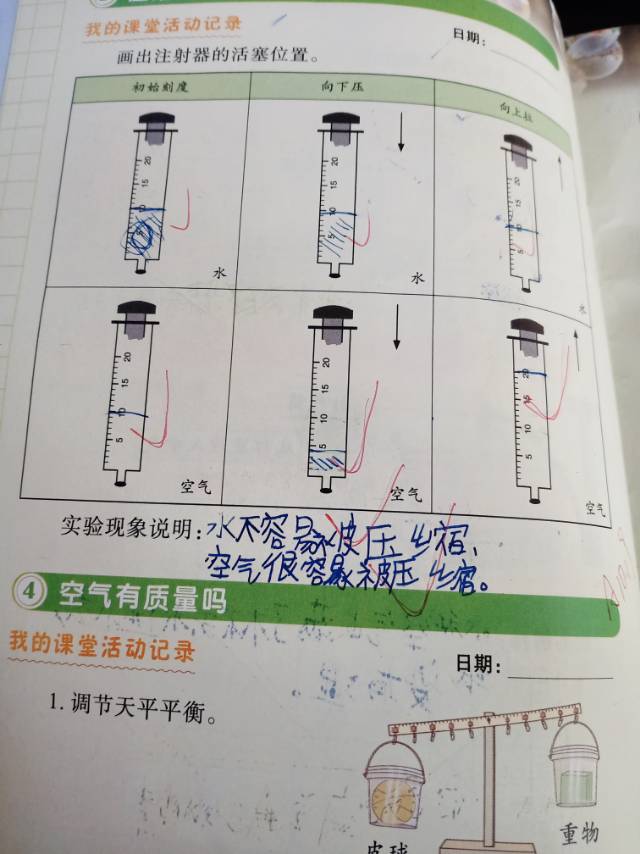 我的课堂活动记录
日期：
画出注射器的活塞位置。
初始刻度 向下压 向上拉
20 15 10 5
水
20 15 10 5
水
20 15 10 5
水
20 15 10 5
空气
20 15 10 5
空气
20 15 10 5
空气
实验现象说明：水不容易被压缩，
空气很容易被压缩。
4 空气有质量吗
我的课堂活动记录
日期：
1. 调节天平平衡。
皮球
重物